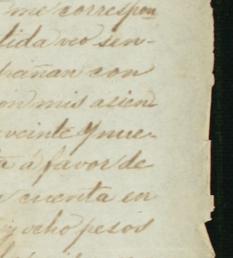 me correspon
tida veo sen-
pañan con
on mis asien
veinte y nue-
á favor de
cuenta en
y ocho pesos